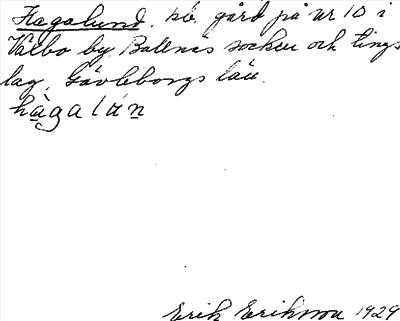 Hagalund. sb. gård på nr 10 i
Välbo by, Bollnäs socken och tings
lag, Gävleborgs län.
hagalun
Erik Eriksson 1929